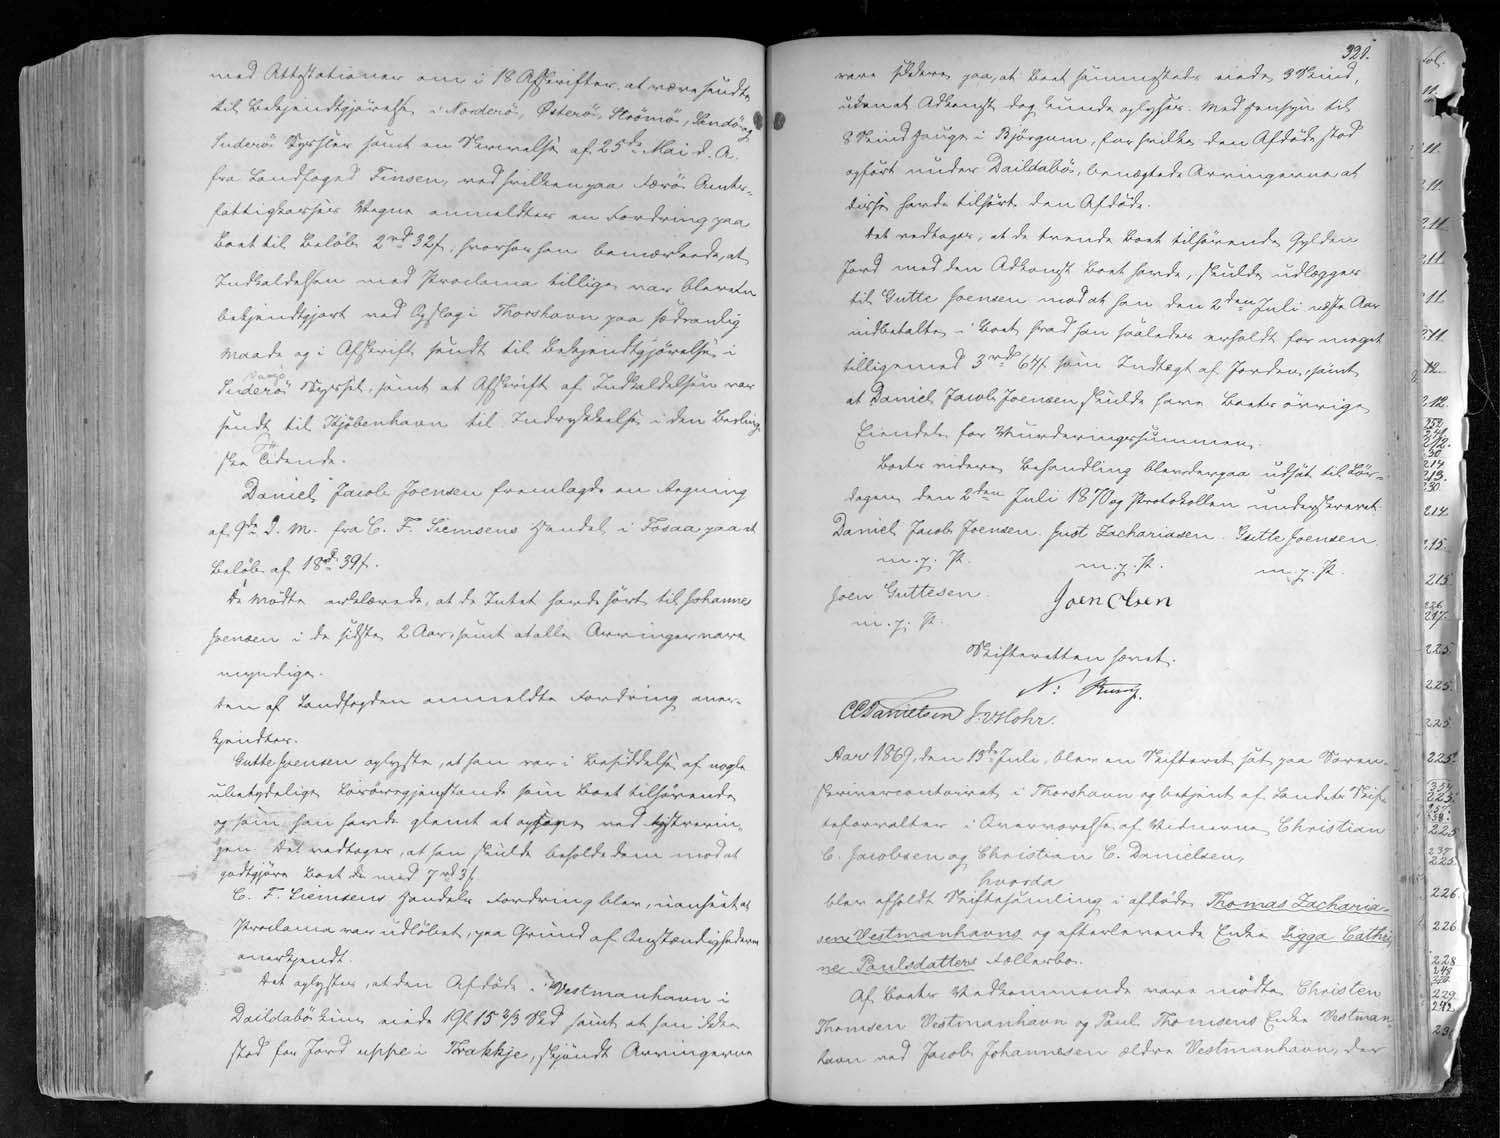 med Attestationer om i 18 Afskrifter at være sendte
til Bekjendtgjørelse i Norderö, Österö, Strömö, Sandö og
Suderö Sysseler samt en Skrivelse af 25de Mai d. A.
fra Landfoged Finsen, ved hvilken paa Færö Amts-
fattigkasses Vegne anmeldtes en Fordring paa
Boet til Beløb 2rd 32s, hvorhos han bemærkede, at
Indkaldelsen med Proclama tillige var bleven
bekjendtgjort ved Opslag i Thorshavn paa sædvanlig
Maade og i Afskrift sendt til Bekjendtgjørelse i
Vaagö
Suderö Syssel, samt at Afskrift af Indkaldelsen var
sendt til Kjöbenhavn til Indrykkelse i den Berling
ske Tidende.
Daniel Jacob Joensen fremlagde en Regning
af 9de d. M. fra C. F. Siemsens Handel i Fosaa paa et
Beløb af 18rd 39s.
De Mødte erklærede, at de Intet havde hørt til Johannes
Joensen i de sidste 2 Aar, samt at alle Arvinger vare
myndige.
Den af Landfogden anmeldte Fordring aner-
kjendtes.
Gutte Joensen oplyste, at han var i Besiddelse af nogle
ubetydelige Løsøregjenstande som Boet tilhørende
og som han havde glemt at opgive ved Registrerin-
gen. Det vedtoges, at han skulde beholde dem mod at
godtgjøre Boet de med 7rd 3s.
C. F. Siemsens Handels Fordring blev, uanseet at
Proclama var udløbet, paa Grund af Omstændighederne
anerkjendt.
Det oplystes, at den Afdøde i Vestmanhavn i
Daildabö kun eiede 1 Gl 15 2/3 Sk samt at han ikke
stod for Jord uppe i Trakkje, skjöndt Arvingerne
321.
vare sikkre paa, at Boet sammesteds eiede 3 Skind,
uden at Adkomst dog kunde oplyses. Med Hensyn til
8 Skind Hauge i Björgum, for hvilke den Afdöde stod
opført under Daildabö, benægtede Arvingerne at
disse havde tilhørt den Afdøde.
Det vedtoges, at de trende Boet tilhørende Gylden
Jord med den Adkomst Boet havde, skulde udlægges
til Gutte Joensen mod at han den 2den Juli næste Aar
indbetalte i Boet hvad han saaledes erholdt for meget
tilligemed 3rd 64s som Indtægt af Jorden, samt
at Daniel Jacob Joensen skulde have Boets övrige
Eiendele for Vurderingssummen.
Boets videre Behandling blev derpaa udsat til Lör-
dagen den 2den Juli 1870 og Protokollen underskrevet.
Daniel Jacob Joensen. Just Zachariasen. Gutte Joensen.
m. p. P. m. p. P. m. p. P.
Joen Guttesen. Joen Olsen
m. p. P.
Skifteretten hævet.
N:
CCDanielsen J. v Hohr.
Aar 1869, den 13de Juli, blev en Skifteret sat paa Soren-
skrivercontoiret i Thorshavn og betjent af Landets Skif-
teforvalter i Overværelse af Vidnerne Christian
C. Jacobsen og Christian C. Danielsen,
hvorda
blev afholdt Skiftesamling i afdøde Thomas Zacharia-
sens Vestmanhavns og efterlevende Enke Sigga Cathri
ne Poulsdatters Fællesbo.
Af Boets Vedkommende vare mødte Christen
Thomsen Vestmanhavn og Paul Thomsens Enke Vestman-
havn ved Jacob Johannesen ældre Vestmanhavn, der
fol.
11.
211.
211.
211.
211.
211.
211.
212.
212.
252.
212.
230.
214.
213.
230.
214.
215.
215.
226.
217.
225.
225.
225.
225.
225.
225.
237.
225.
226.
226.
228.
229.
242.